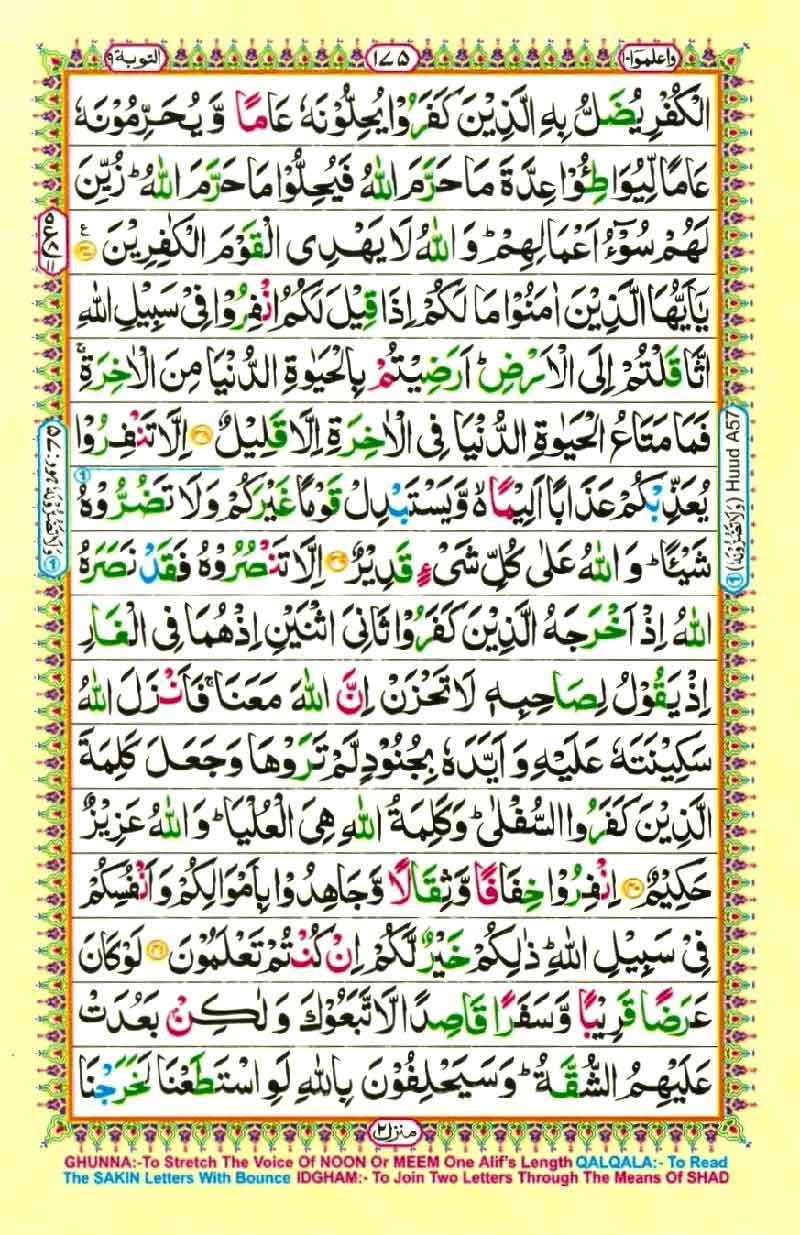 واعلموا ١٠
١٧٥
التوبة ٩
الْكُفْرِ يُضَلُّ بِهِ الَّذِيْنَ كَفَرُوْا يُحِلُّوْنَهٗ عَامًا وَّيُحَرِّمُوْنَهٗ
عَامًا لِّيُوَاطِـُٔوْا عِدَّةَ مَا حَرَّمَ اللّٰهُ فَيُحِلُّوْا مَا حَرَّمَ اللّٰهُ ؕ زُيِّنَ
لَهُمْ سُوْٓءُ اَعْمَالِهِمْ ؕ وَاللّٰهُ لَا يَهْدِى الْقَوْمَ الْكٰفِرِيْنَ ۝
يٰۤاَيُّهَا الَّذِيْنَ اٰمَنُوْا مَا لَكُمْ اِذَا قِيْلَ لَكُمُ انْفِرُوْا فِىْ سَبِيْلِ اللّٰهِ
اثَّاقَلْتُمْ اِلَى الْاَرْضِ ؕ اَرَضِيْتُمْ بِالْحَيٰوةِ الدُّنْيَا مِنَ الْاٰخِرَةِ ۚ
فَمَا مَتَاعُ الْحَيٰوةِ الدُّنْيَا فِى الْاٰخِرَةِ اِلَّا قَلِيْلٌ ۝ اِلَّا تَنْفِرُوْا
يُعَذِّبْكُمْ عَذَابًا اَلِيْمًا ۙ وَّيَسْتَبْدِلْ قَوْمًا غَيْرَكُمْ وَلَا تَضُرُّوْهُ
شَيْـًٔا ؕ وَاللّٰهُ عَلٰى كُلِّ شَىْءٍ قَدِيْرٌ ۝ اِلَّا تَنْصُرُوْهُ فَقَدْ نَصَرَهُ
اللّٰهُ اِذْ اَخْرَجَهُ الَّذِيْنَ كَفَرُوْا ثَانِىَ اثْنَيْنِ اِذْ هُمَا فِى الْغَارِ
اِذْ يَقُوْلُ لِصَاحِبِهٖ لَا تَحْزَنْ اِنَّ اللّٰهَ مَعَنَا ۚ فَاَنْزَلَ اللّٰهُ
سَكِيْنَتَهٗ عَلَيْهِ وَاَيَّدَهٗ بِجُنُوْدٍ لَّمْ تَرَوْهَا وَجَعَلَ كَلِمَةَ
الَّذِيْنَ كَفَرُوا السُّفْلٰى ؕ وَكَلِمَةُ اللّٰهِ هِىَ الْعُلْيَا ؕ وَاللّٰهُ عَزِيْزٌ
حَكِيْمٌ ۝ اِنْفِرُوْا خِفَافًا وَّثِقَالًا وَّجَاهِدُوْا بِاَمْوَالِكُمْ وَاَنْفُسِكُمْ
فِىْ سَبِيْلِ اللّٰهِ ؕ ذٰلِكُمْ خَيْرٌ لَّكُمْ اِنْ كُنْتُمْ تَعْلَمُوْنَ ۝ لَوْ كَانَ
عَرَضًا قَرِيْبًا وَّسَفَرًا قَاصِدًا لَّاتَّبَعُوْكَ وَلٰكِنْۢ بَعُدَتْ
عَلَيْهِمُ الشُّقَّةُ ؕ وَسَيَحْلِفُوْنَ بِاللّٰهِ لَوِ اسْتَطَعْنَا لَخَرَجْنَا
Huud A57
منزل ٢
GHUNNA:-To Stretch The Voice Of NOON Or MEEM One Alif's Length QALQALA:- To Read
The SAKIN Letters With Bounce IDGHAM:- To Join Two Letters Through The Means Of SHAD